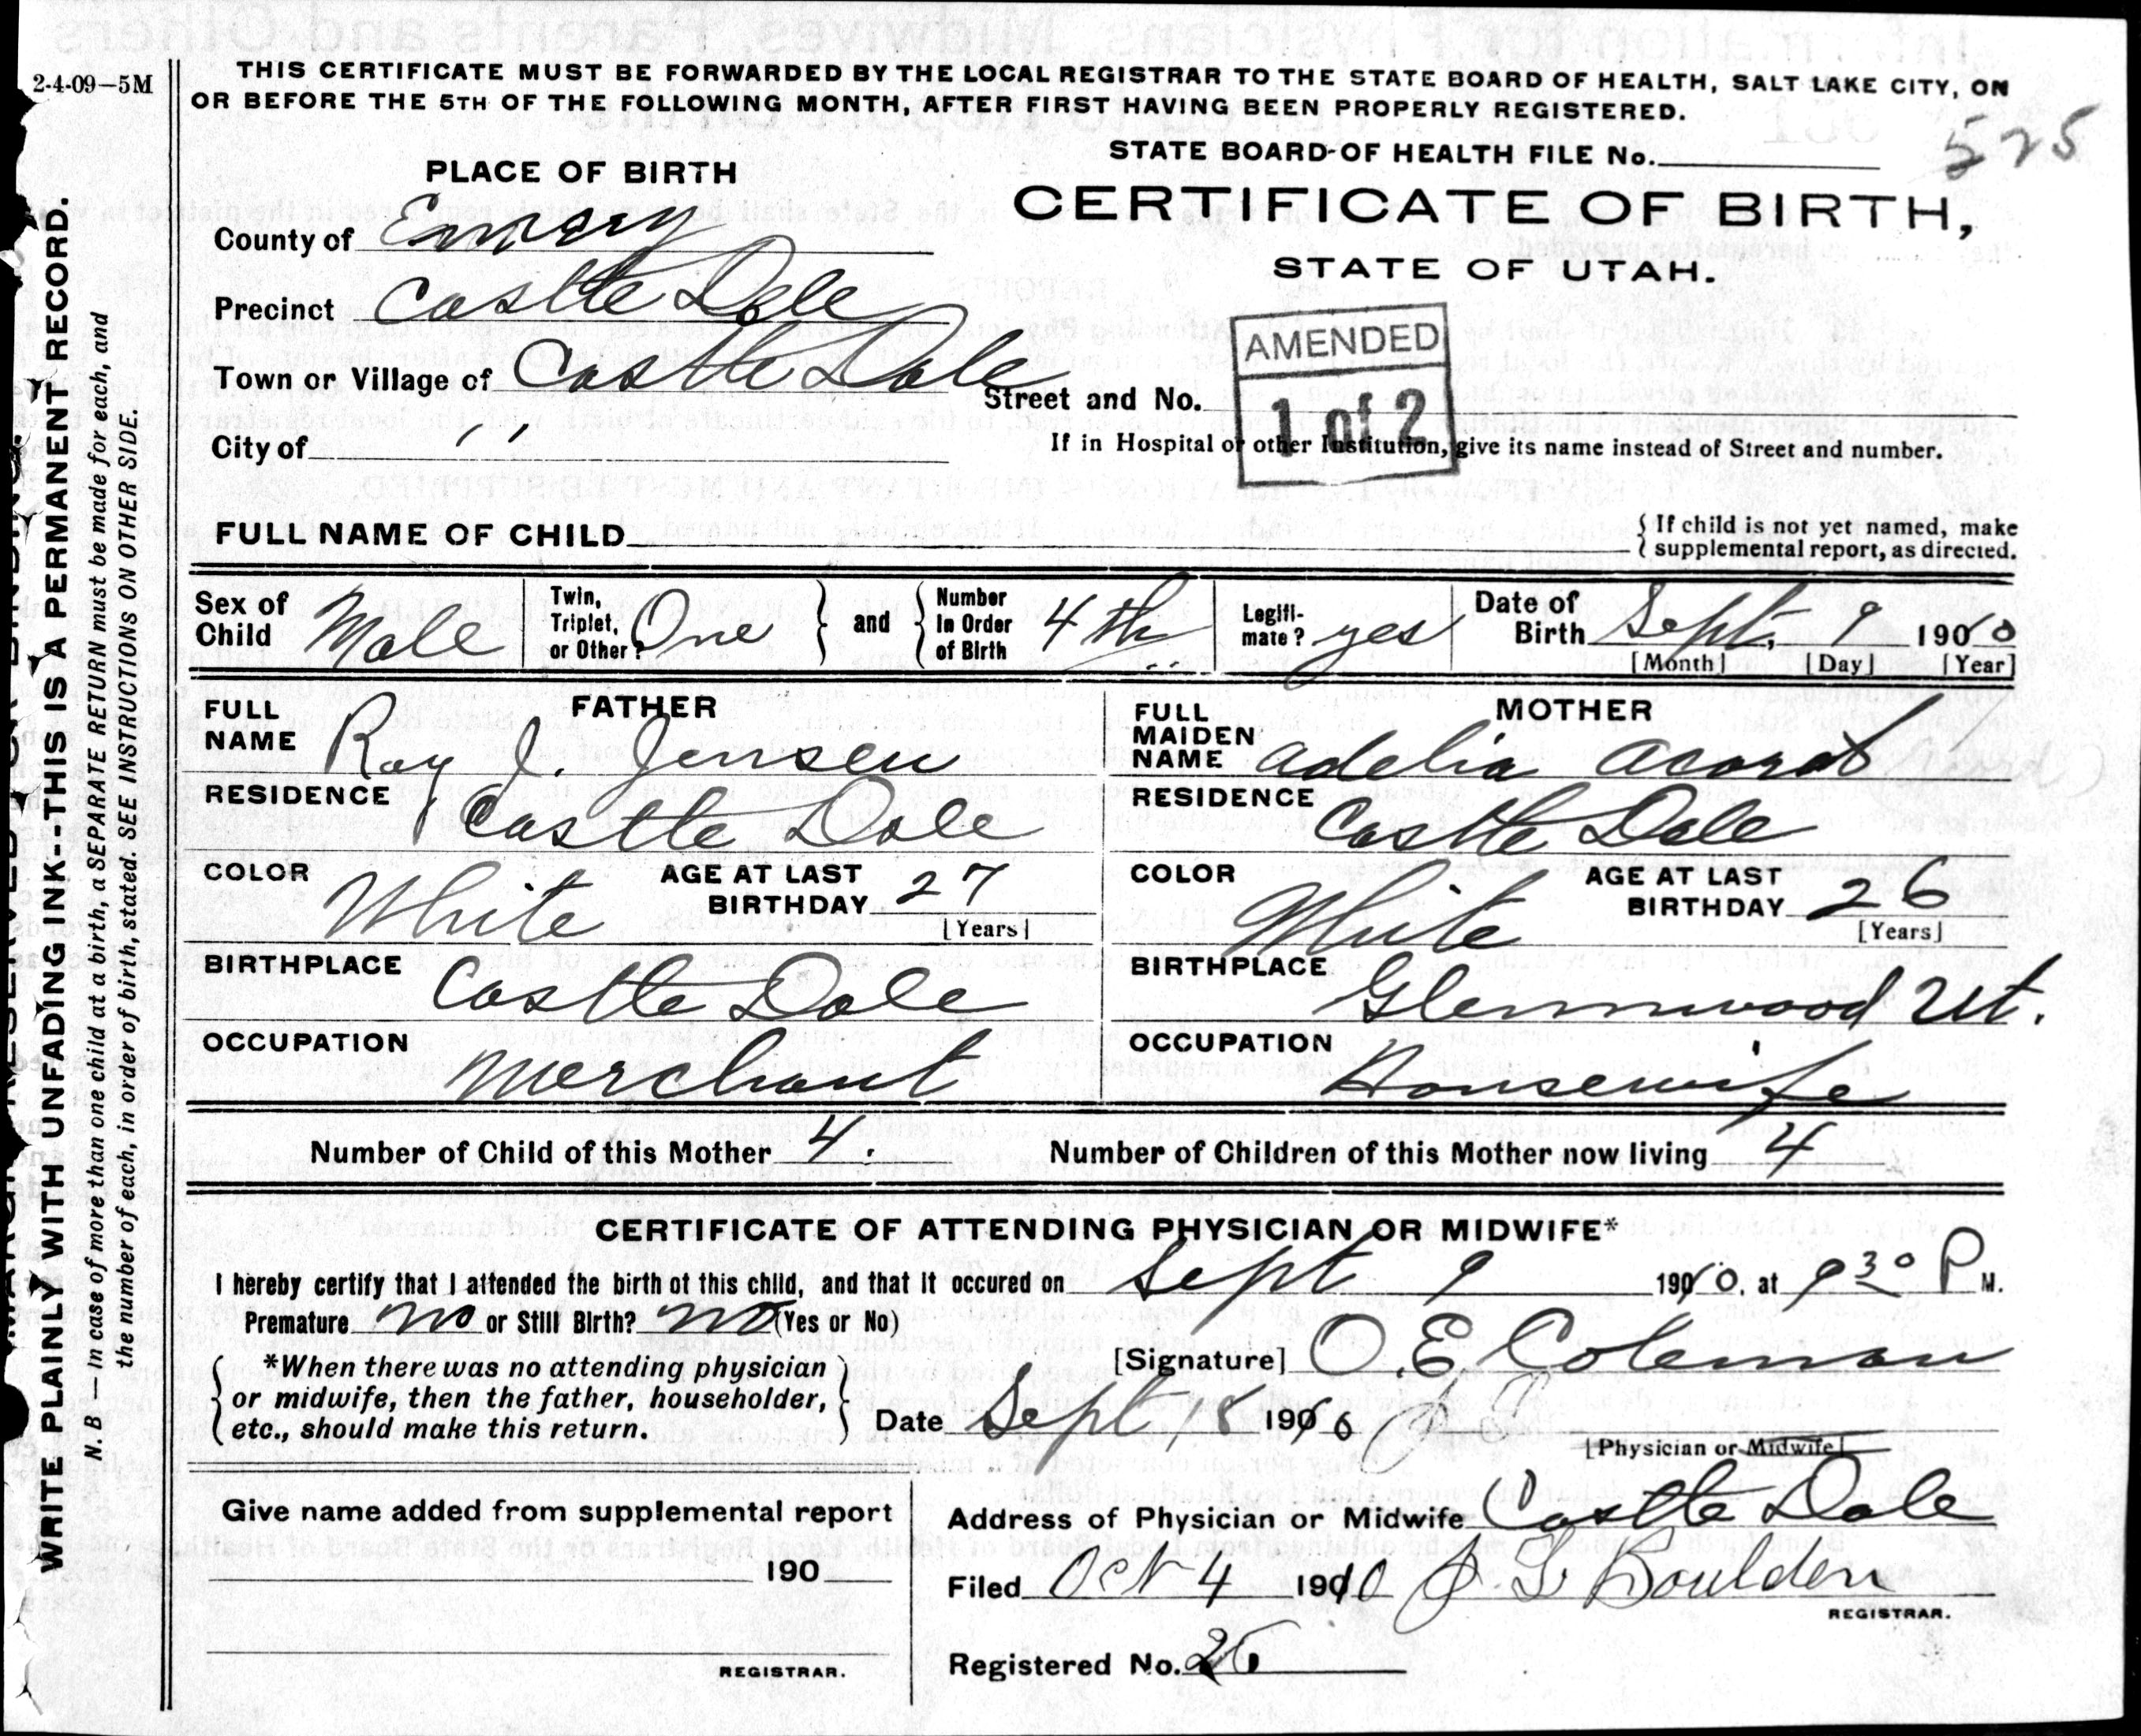 2-4-09-5M
THIS CERTIFICATE MUST BE FORWARDED BY THE LOCAL REGISTRAR TO THE STATE BOARD OF HEALTH, SALT LAKE CITY, ON
OR BEFORE THE 5TH OF THE FOLLOWING MONTH, AFTER FIRST HAVING BEEN PROPERLY REGISTERED.
STATE BOARD OF HEALTH FILE No. 525
PLACE OF BIRTH
CERTIFICATE OF BIRTH,
STATE OF UTAH.
County of Emery
Precinct Castle Dale
Town or Village of Castle Dale
Street and No.
AMENDED
1 of 2
City of " 
If in Hospital or other Institution, give its name instead of Street and number.
FULL NAME OF CHILD
{ If child is not yet named, make
supplemental report, as directed.
Sex of Child Male
Twin, Triplet, or Other? One } and { Number In Order of Birth 4th
Legitimate? yes
Date of Birth Sept. 9 1900
[Month] [Day] [Year]
FATHER
FULL NAME Ray J. Jensen
RESIDENCE Castle Dale
COLOR White AGE AT LAST BIRTHDAY 27 [Years]
BIRTHPLACE Castle Dale
OCCUPATION Merchant
MOTHER
FULL MAIDEN NAME Adelia Acord
RESIDENCE Castle Dale
COLOR White AGE AT LAST BIRTHDAY 26 [Years]
BIRTHPLACE Glennwood Ut.
OCCUPATION Housewife
Number of Child of this Mother 4. Number of Children of this Mother now living 4
CERTIFICATE OF ATTENDING PHYSICIAN OR MIDWIFE*
I hereby certify that I attended the birth of this child, and that it occured on Sept 9 1910, at 9 30 P M.
Premature no or Still Birth? no (Yes or No)
{ *When there was no attending physician
or midwife, then the father, householder,
etc., should make this return. }
[Signature] O.E. Coleman
Date Sept 18 190
[Physician or Midwife]
Give name added from supplemental report
190
REGISTRAR.
Address of Physician or Midwife Castle Dale
Filed Oct 4 1910 J. L. Boulden
REGISTRAR.
Registered No. 26
WRITE PLAINLY WITH UNFADING INK--THIS IS A PERMANENT RECORD.
N. B — In case of more than one child at a birth, a SEPARATE RETURN must be made for each, and
the number of each, in order of birth, stated. SEE INSTRUCTIONS ON OTHER SIDE.